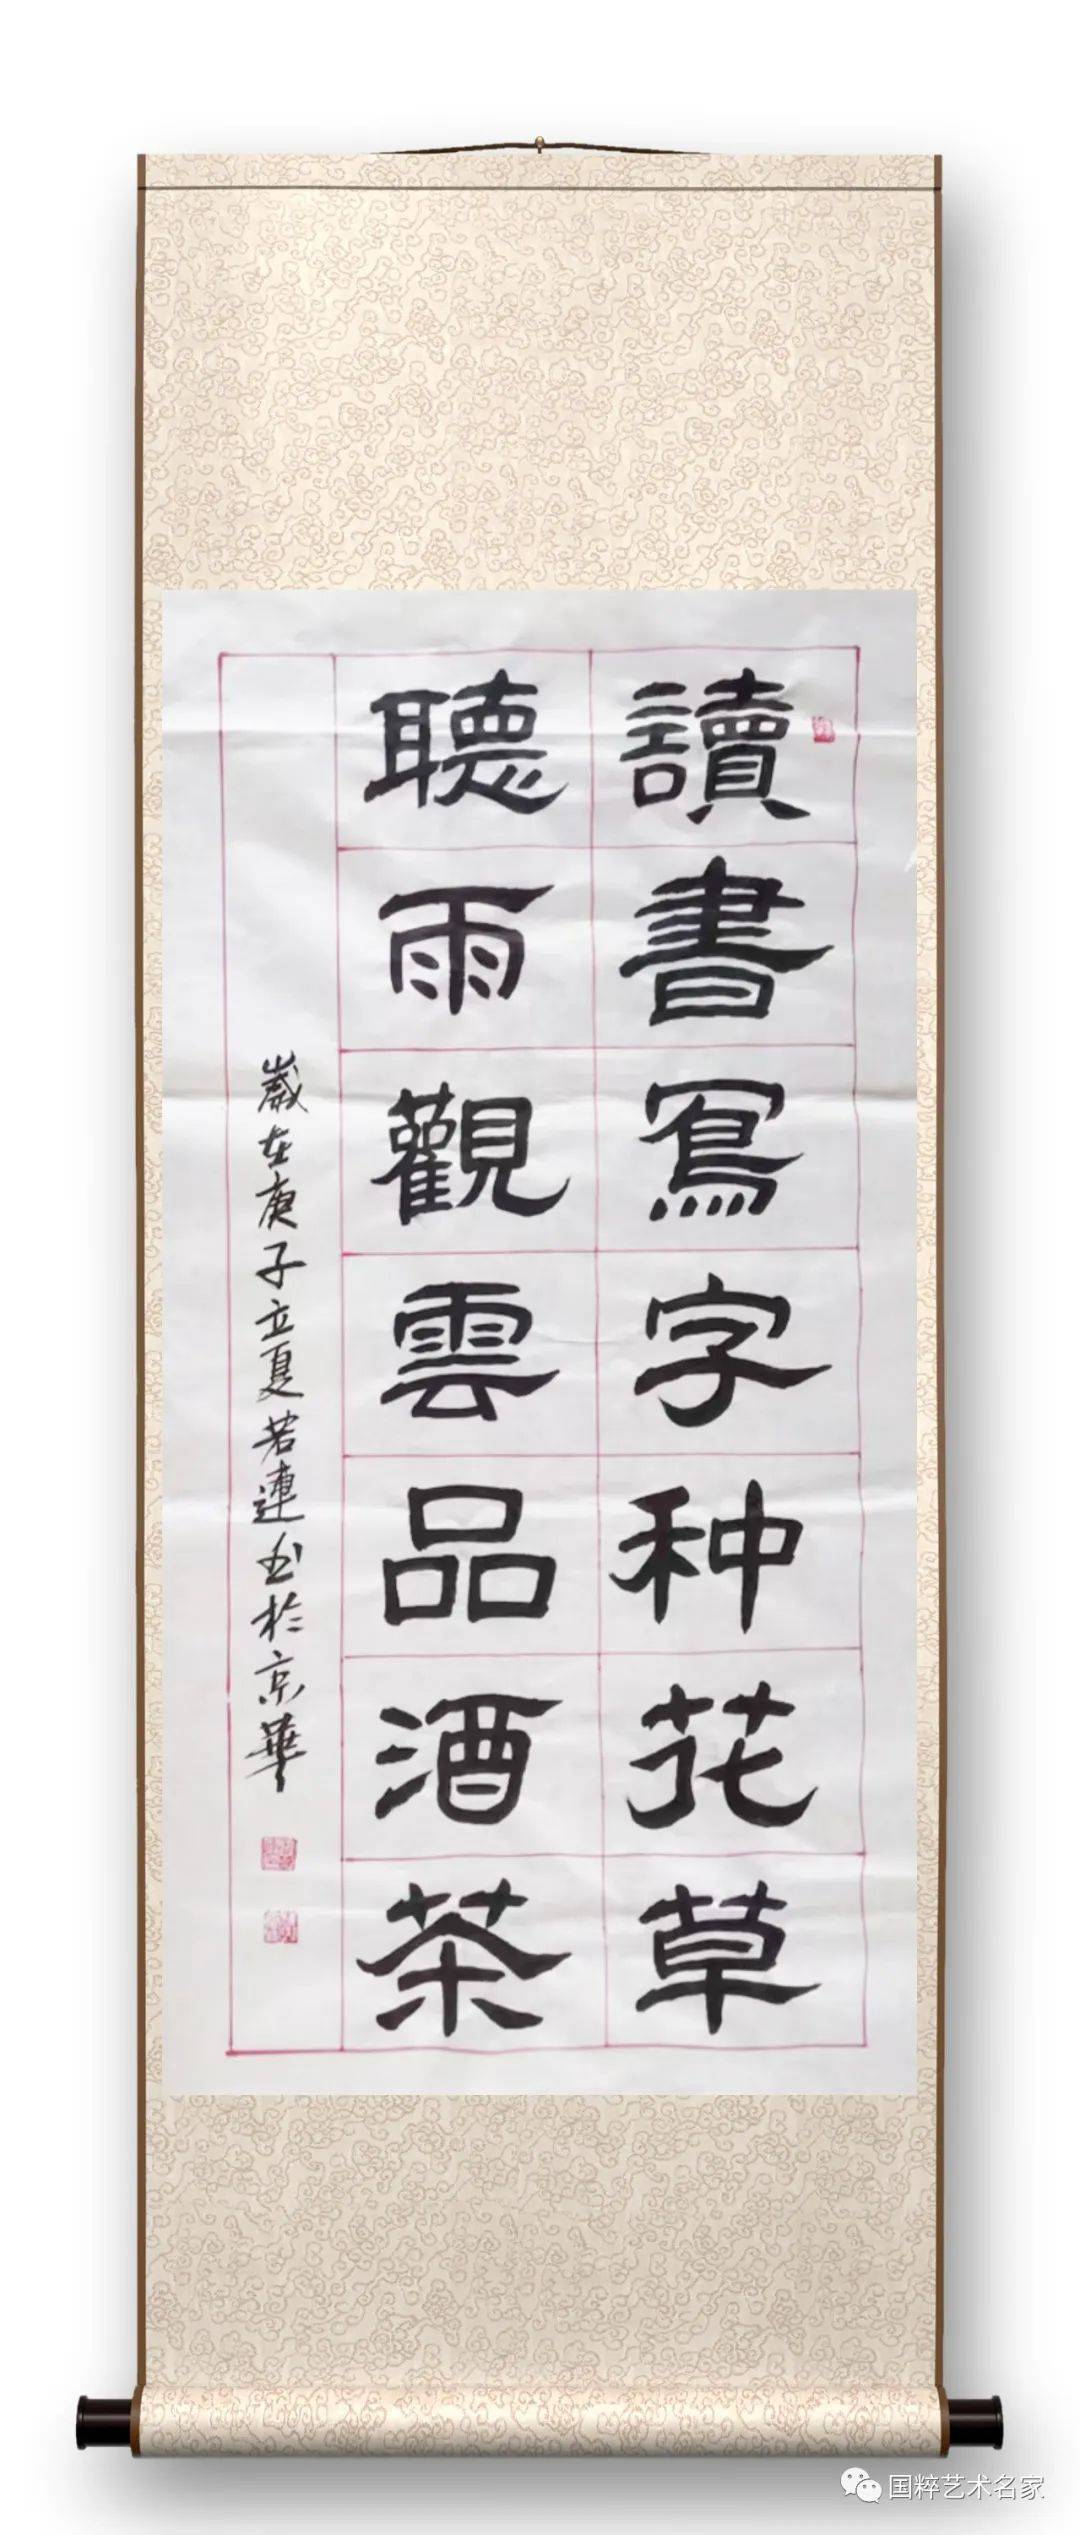 讀書寫字种花草
聽雨觀雲品酒茶
歲在庚子立夏若連书於京華
国粹艺术名家